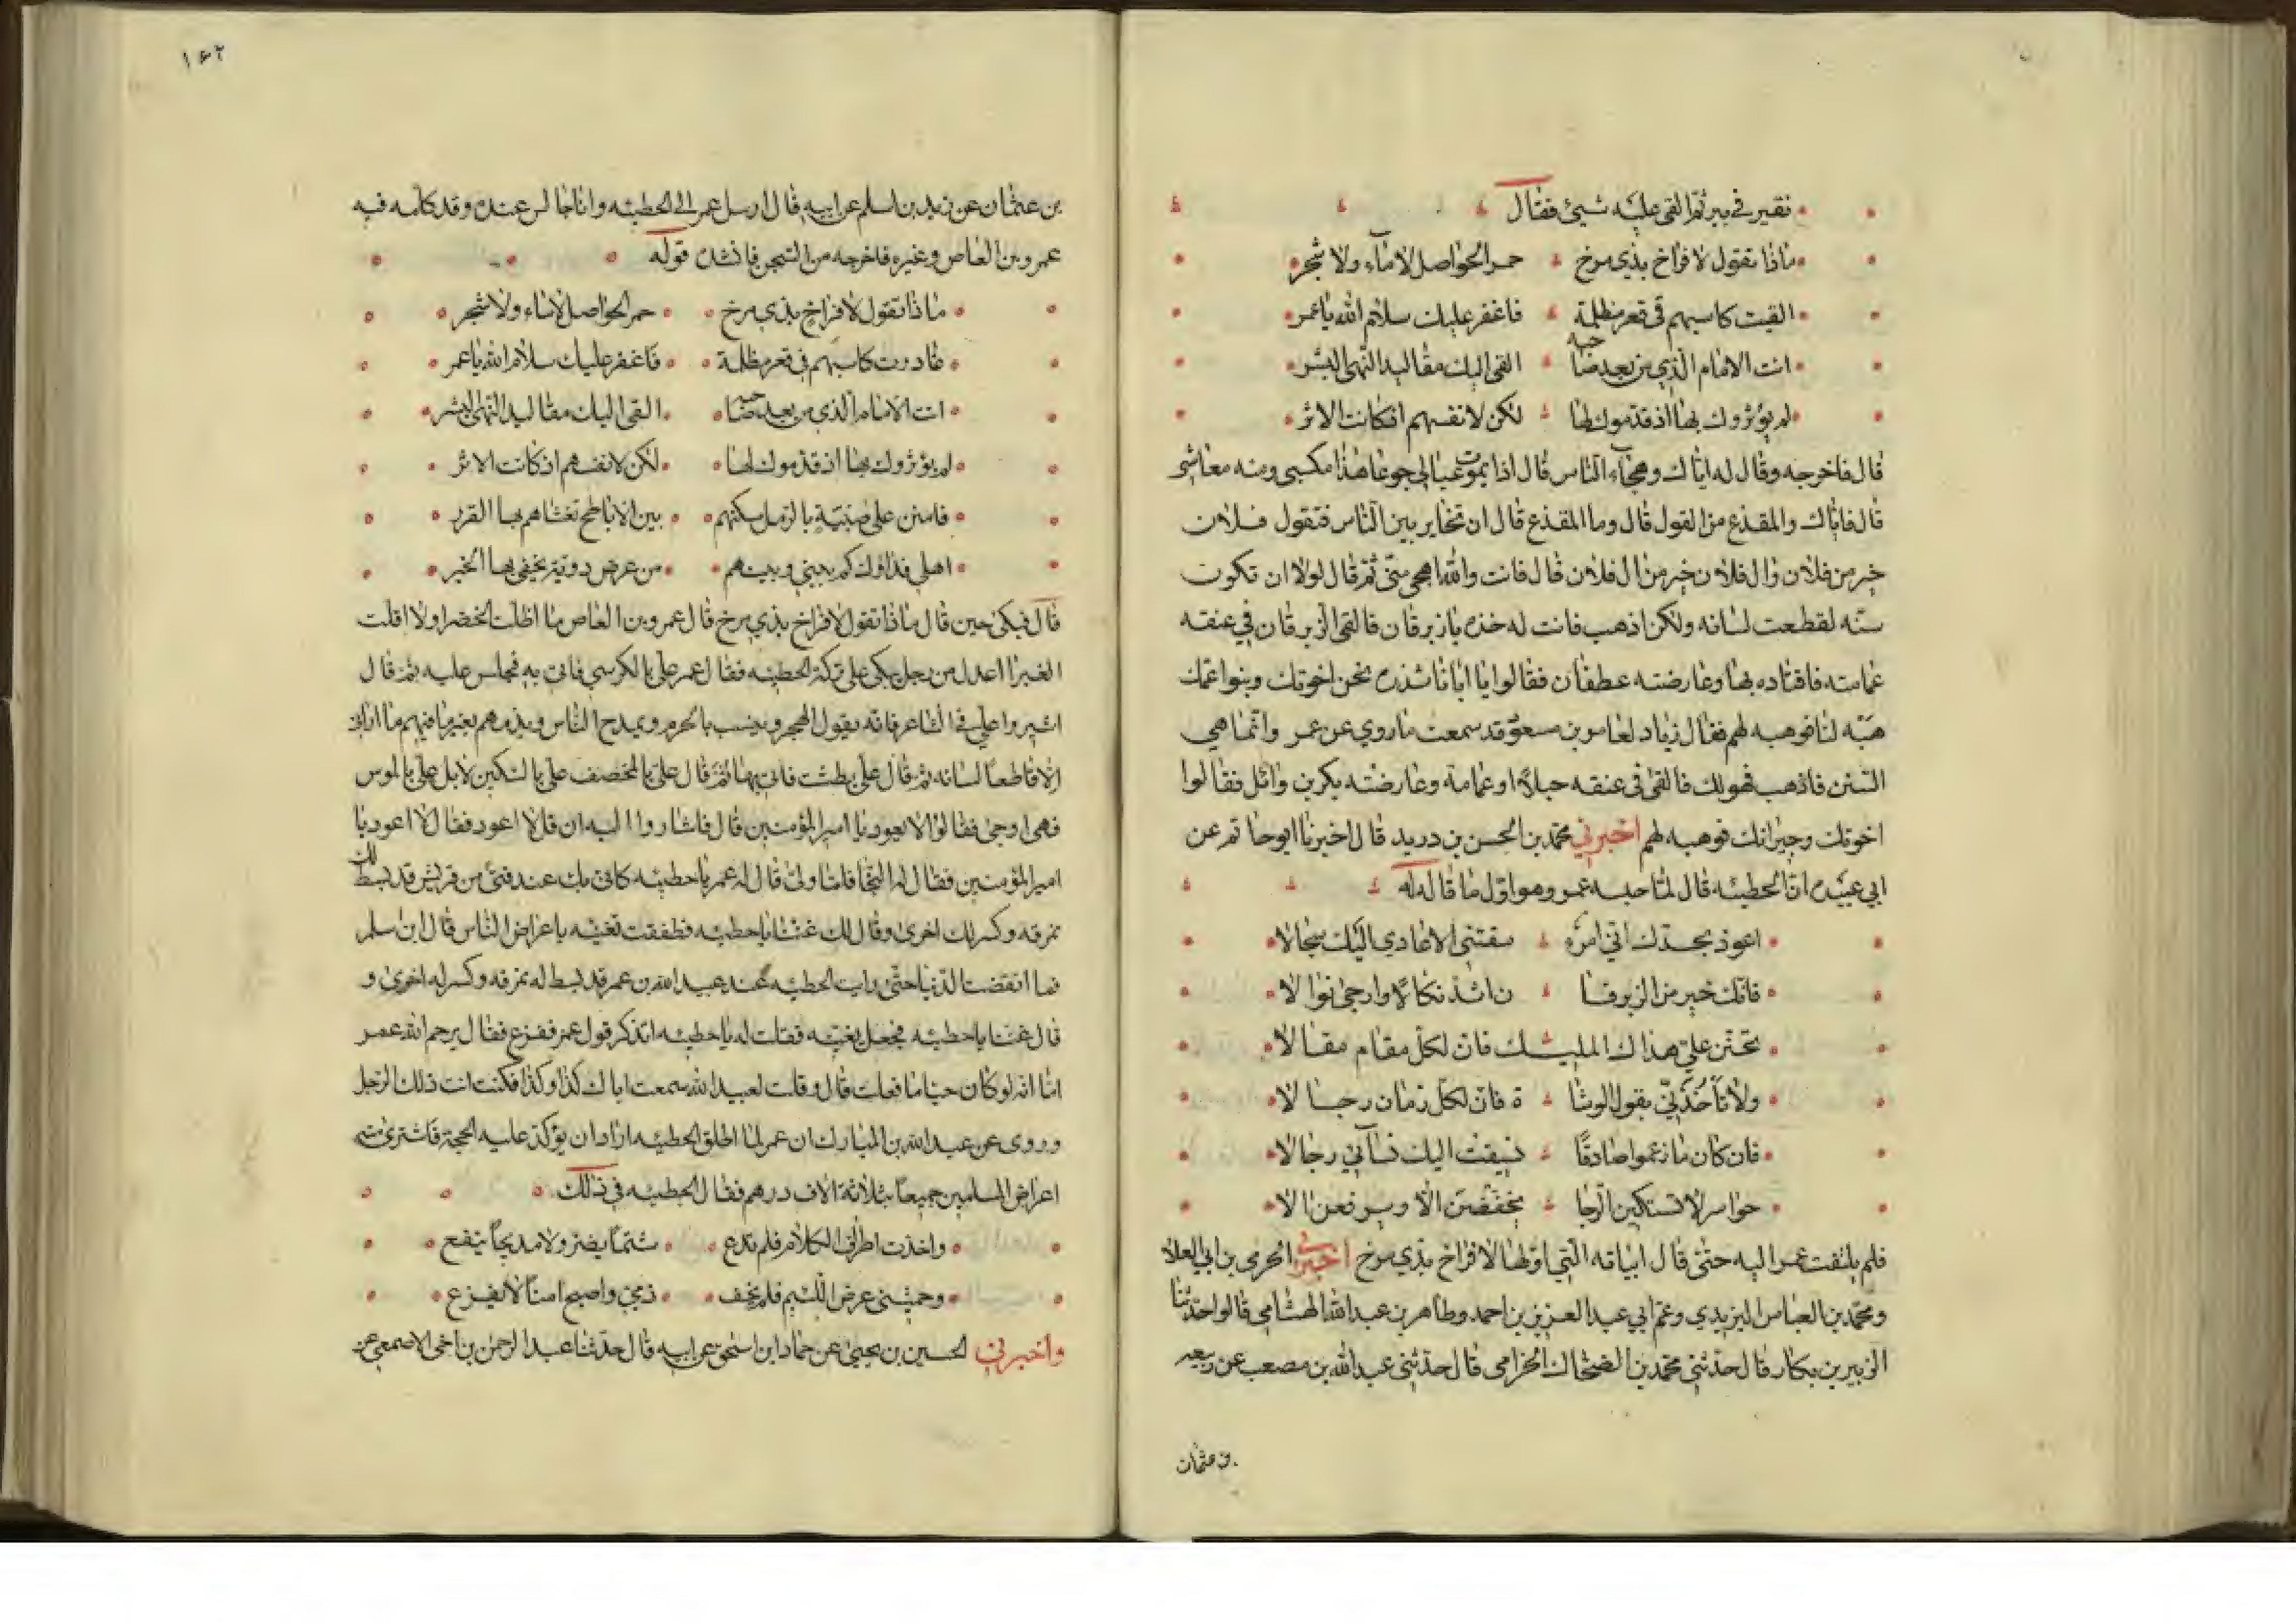 نقير في بير ثم القى عليه شيئ فقال
ماذا تقول لافراخ بذي مرخ حمر الحواصل لا ماء ولا شجر
القيت كاسبهم في قعر مظلمة فاغفر عليك سلام الله يا عمر
انت الامام الذي من بعد صاحبه القى اليك مقاليد النهى البشر
لم يؤثروك بها اذ قدموك لها لكن لانفسهم اذ كانت الاثر
قال فاخرجه وقال له اياك وهجاء الناس قال اذا يموت عيالي جوعا هذا مكسبي ومنه معاشي
قال فاياك والمقذع من القول قال وما المقذع قال ان تخاير بين الناس فتقول فلان
خير من فلان وال فلان خير من ال فلان قال فانت والله اهجى مني ثم قال لولا ان تكون
سنه لقطعت لسانه ولكن اذهب فانت له خذه يا زبرقان فالقى الزبرقان في عنقه
عمامته فاقتاده بها وعارضته عطفان فقالوا يا ابا شذره نحن اخوتك وبنوا عمك
هبه لنا فوهبه لهم فقال زياد لعامر بن مسعود قد سمعت ما روي عن عمر وانما هي
السنن فاذهب فهو لك فالقى في عنقه حبلا او عمامة وعارضته بكر بن وائل فقالوا
اخوتك وجيرانك فوهبه لهم اخبرني محمد بن الحسن بن دريد قال اخبرنا ابو حاتم عن
ابي عبيده ان الحطيئه قال لما حبسه عمر وهو اول ما قاله له
اعوذ بجدك اني امرء سقتني الاعادي اليك سجالا
فانك خير من الزبرقا ن اشد نكالا وارجى نوالا
تحنن علي هداك المليك فان لكل مقام مقالا
ولا تأخذني بقول الوشا ة فان لكل زمان رجالا
فان كان ما زعموا صادقا فسيقت اليك نسآئي رجالا
حواسر لا تستكين الوجا يخفضن الا ويرفعن الا
فلم يلتفت عمر اليه حتى قال ابياته التي اولها لافراخ بذي مرخ اخبرني الحرمى بن ابي العلا
ومحمد بن العباس اليزيدي وعم ابي عبد العزيز بن احمد وطاهر بن عبد الله الهشامي قالوا حدثنا
الزبير بن بكار قال حدثني محمد بن الضحاك الخزامى قال حدثني عبد الله بن مصعب عن ربيعه
بن عثمان
١٤٢
بن عثمان عن زيد بن اسلم عن ابيه قال ارسل عمر الى الحطيئه وانا جالس عنده وقد كلمه فيه
عمرو بن العاص وغيره فاخرجه من السجن فانشد قوله
ماذا تقول لافراخ بذي مرخ حمر الحواصل لا ماء ولا شجر
غادرت كاسبهم في قعر مظلمة فاغفر عليك سلام الله يا عمر
انت الامام الذي من بعد صاحبه القى اليك مقاليد النهى البشر
لم يؤثروك بها اذ قدموك لها لكن لانفسهم اذ كانت الاثر
فامنن على صبية بالرمل مسكنهم بين الاباطح تغشاهم بها القرر
اهلي فداؤك كم بيني وبينهم من عرض دوية يخفى بها الخبر
قال فبكى حين قال ماذا تقول لافراخ بذي مرخ قال عمرو بن العاص ما اظلت الخضرا ولا اقلت
الغبرا اعدل من رجل يبكي على تركة الحطيئه فقال عمر علي بالكرسي فاتى به فجلس عليه ثم قال
اشيروا علي في الشاعر فانه يقول الهجر وينسب بالحرم ويمدح الناس ويذمهم بغير ما فيهم ما اراني
الا قاطعا لسانه ثم قال علي بطشت فاتى بها ثم قال علي بالمخصف علي بالسكين لا بل علي بالموس
فهى اوجى فقالوا لا يعود يا امير المؤمنين قال فاشاروا اليه ان قل لا اعود فقال لا اعود يا
امير المؤمنين فقال له النجا فلما ولى قال له عمر يا حطيئه كاني بك عند فتى من قريش قد بسط لك
نمرقه وكسر لك اخرى وقال لك غننا يا حطيئه فطفقت تغنيه باعراض الناس قال ابن سلم
فما انقضت الدنيا حتى رايت الحطيئه عند عبيد الله بن عمر قد بسط له نمرقه وكسر له اخرى و
قال غننا يا حطيئه فجعل يغنيه فقلت له يا حطيئه اتذكر قول عمر ففزع فقال يرحم الله عمر
اما انه لو كان حيا ما فعلت قال وقلت لعبيد الله سمعت اباك كذا وكذا فكنت انت ذلك الرجل
وروى عن عبد الله بن المبارك ان عمر لما اطلق الحطيئه اراد ان يؤكد عليه الحجة فاشترى منه
اعراض المسلمين جميعا بثلاثة الاف درهم فقال الحطيئه في ذلك
واخذت اطراف الكلام فلم تدع شتما يضر ولا مديحا ينفع
وحميتني عرض اللئيم فلم يخف ذمي واصبح امنا لا يفزع
واخبرني الحسين بن يحيى عن حماد ابن اسحق عن ابيه قال حدثنا عبد الرحمن بن اخى الاصمعي عن